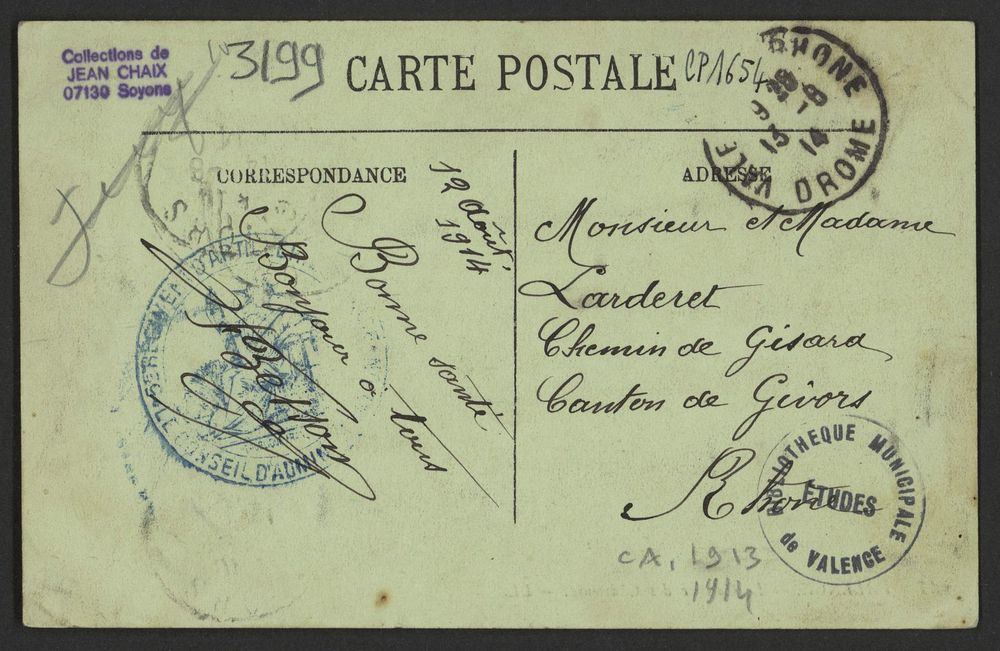 Collections de
JEAN CHAIX
07130 Soyons
3199
CARTE POSTALE
CP1654
RHONE
DROME
CORRESPONDANCE
12 août
1914
Bonne santé
Bonjour a tous
D'ARTILLERIE
CONSEIL D'ADMIN
ADRESSE
Monsieur et Madame
Larderet
Chemin de Gisard
Canton de Givors
Rhône
BIBLIOTHEQUE MUNICIPALE
ETUDES
de VALENCE
CA. 1913
1914